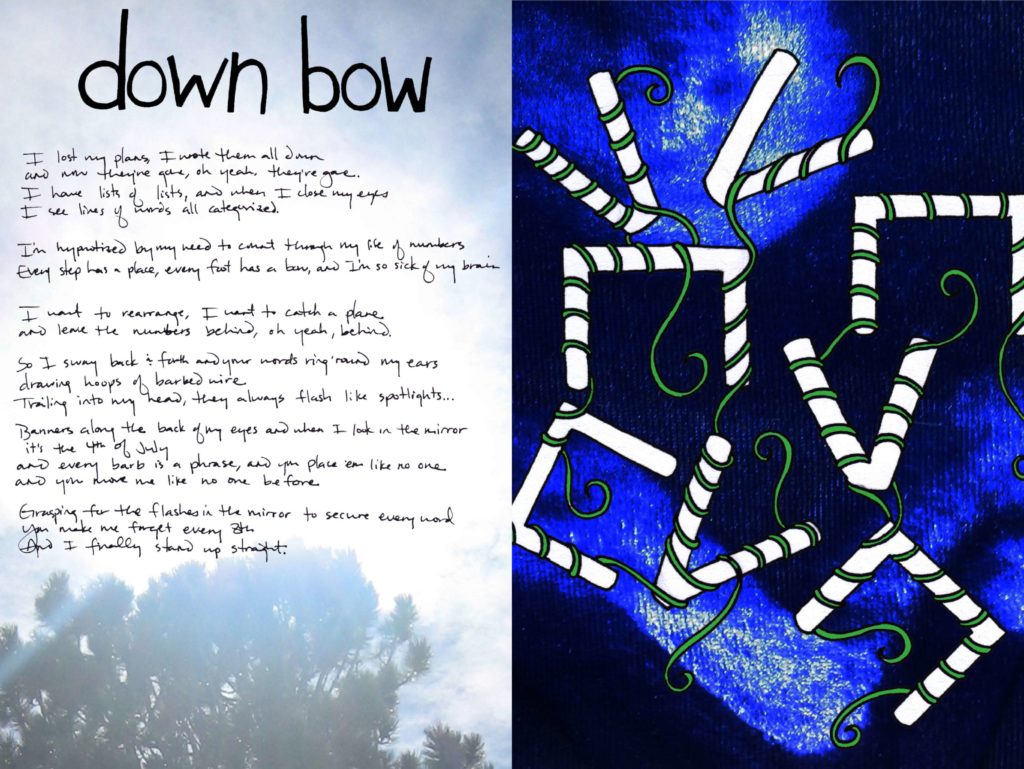 down bow
I lost my plans, I wrote them all down
and now they're gone, oh yeah, they're gone.
I have lists of lists, and when I close my eyes
I see lines of words all categorized.
I'm hypnotized by my need to count through my life of numbers
Every step has a place, every foot has a bow, and I'm so sick of my brain
I want to rearrange, I want to catch a plane
and leave the numbers behind, oh yeah, behind.
So I sway back & forth and your words ring 'round my ears
drawing hoops of barbed wire
Trailing into my head, they always flash like spotlights...
Banners along the back of my eyes and when I look in the mirror
it's the 4th of July
and every barb is a phrase, and you place 'em like no one
and you move me like no one before
Grasping for the flashes in the mirror to secure every word
You make me forget every 8th
And I finally stand up straight.